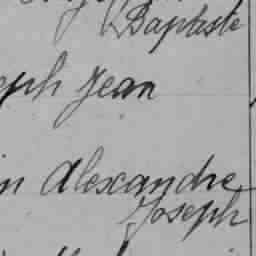 Baptiste
eph Jean
in Alexandre
Joseph